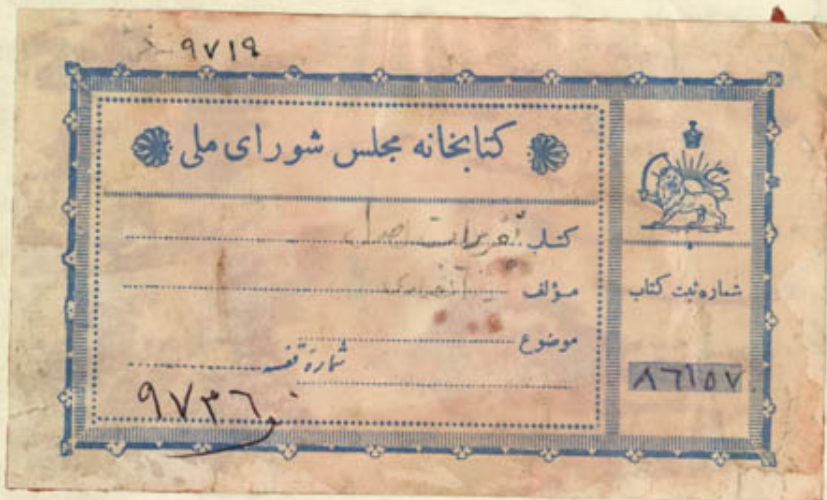 ۹۷۱۹
کتابخانه مجلس شورای ملی
کتاب تقریرات
مؤلف
موضوع
شمارهٔ قفسه
۹۷۳۶
شماره ثبت کتاب
۸۶۱۵۷